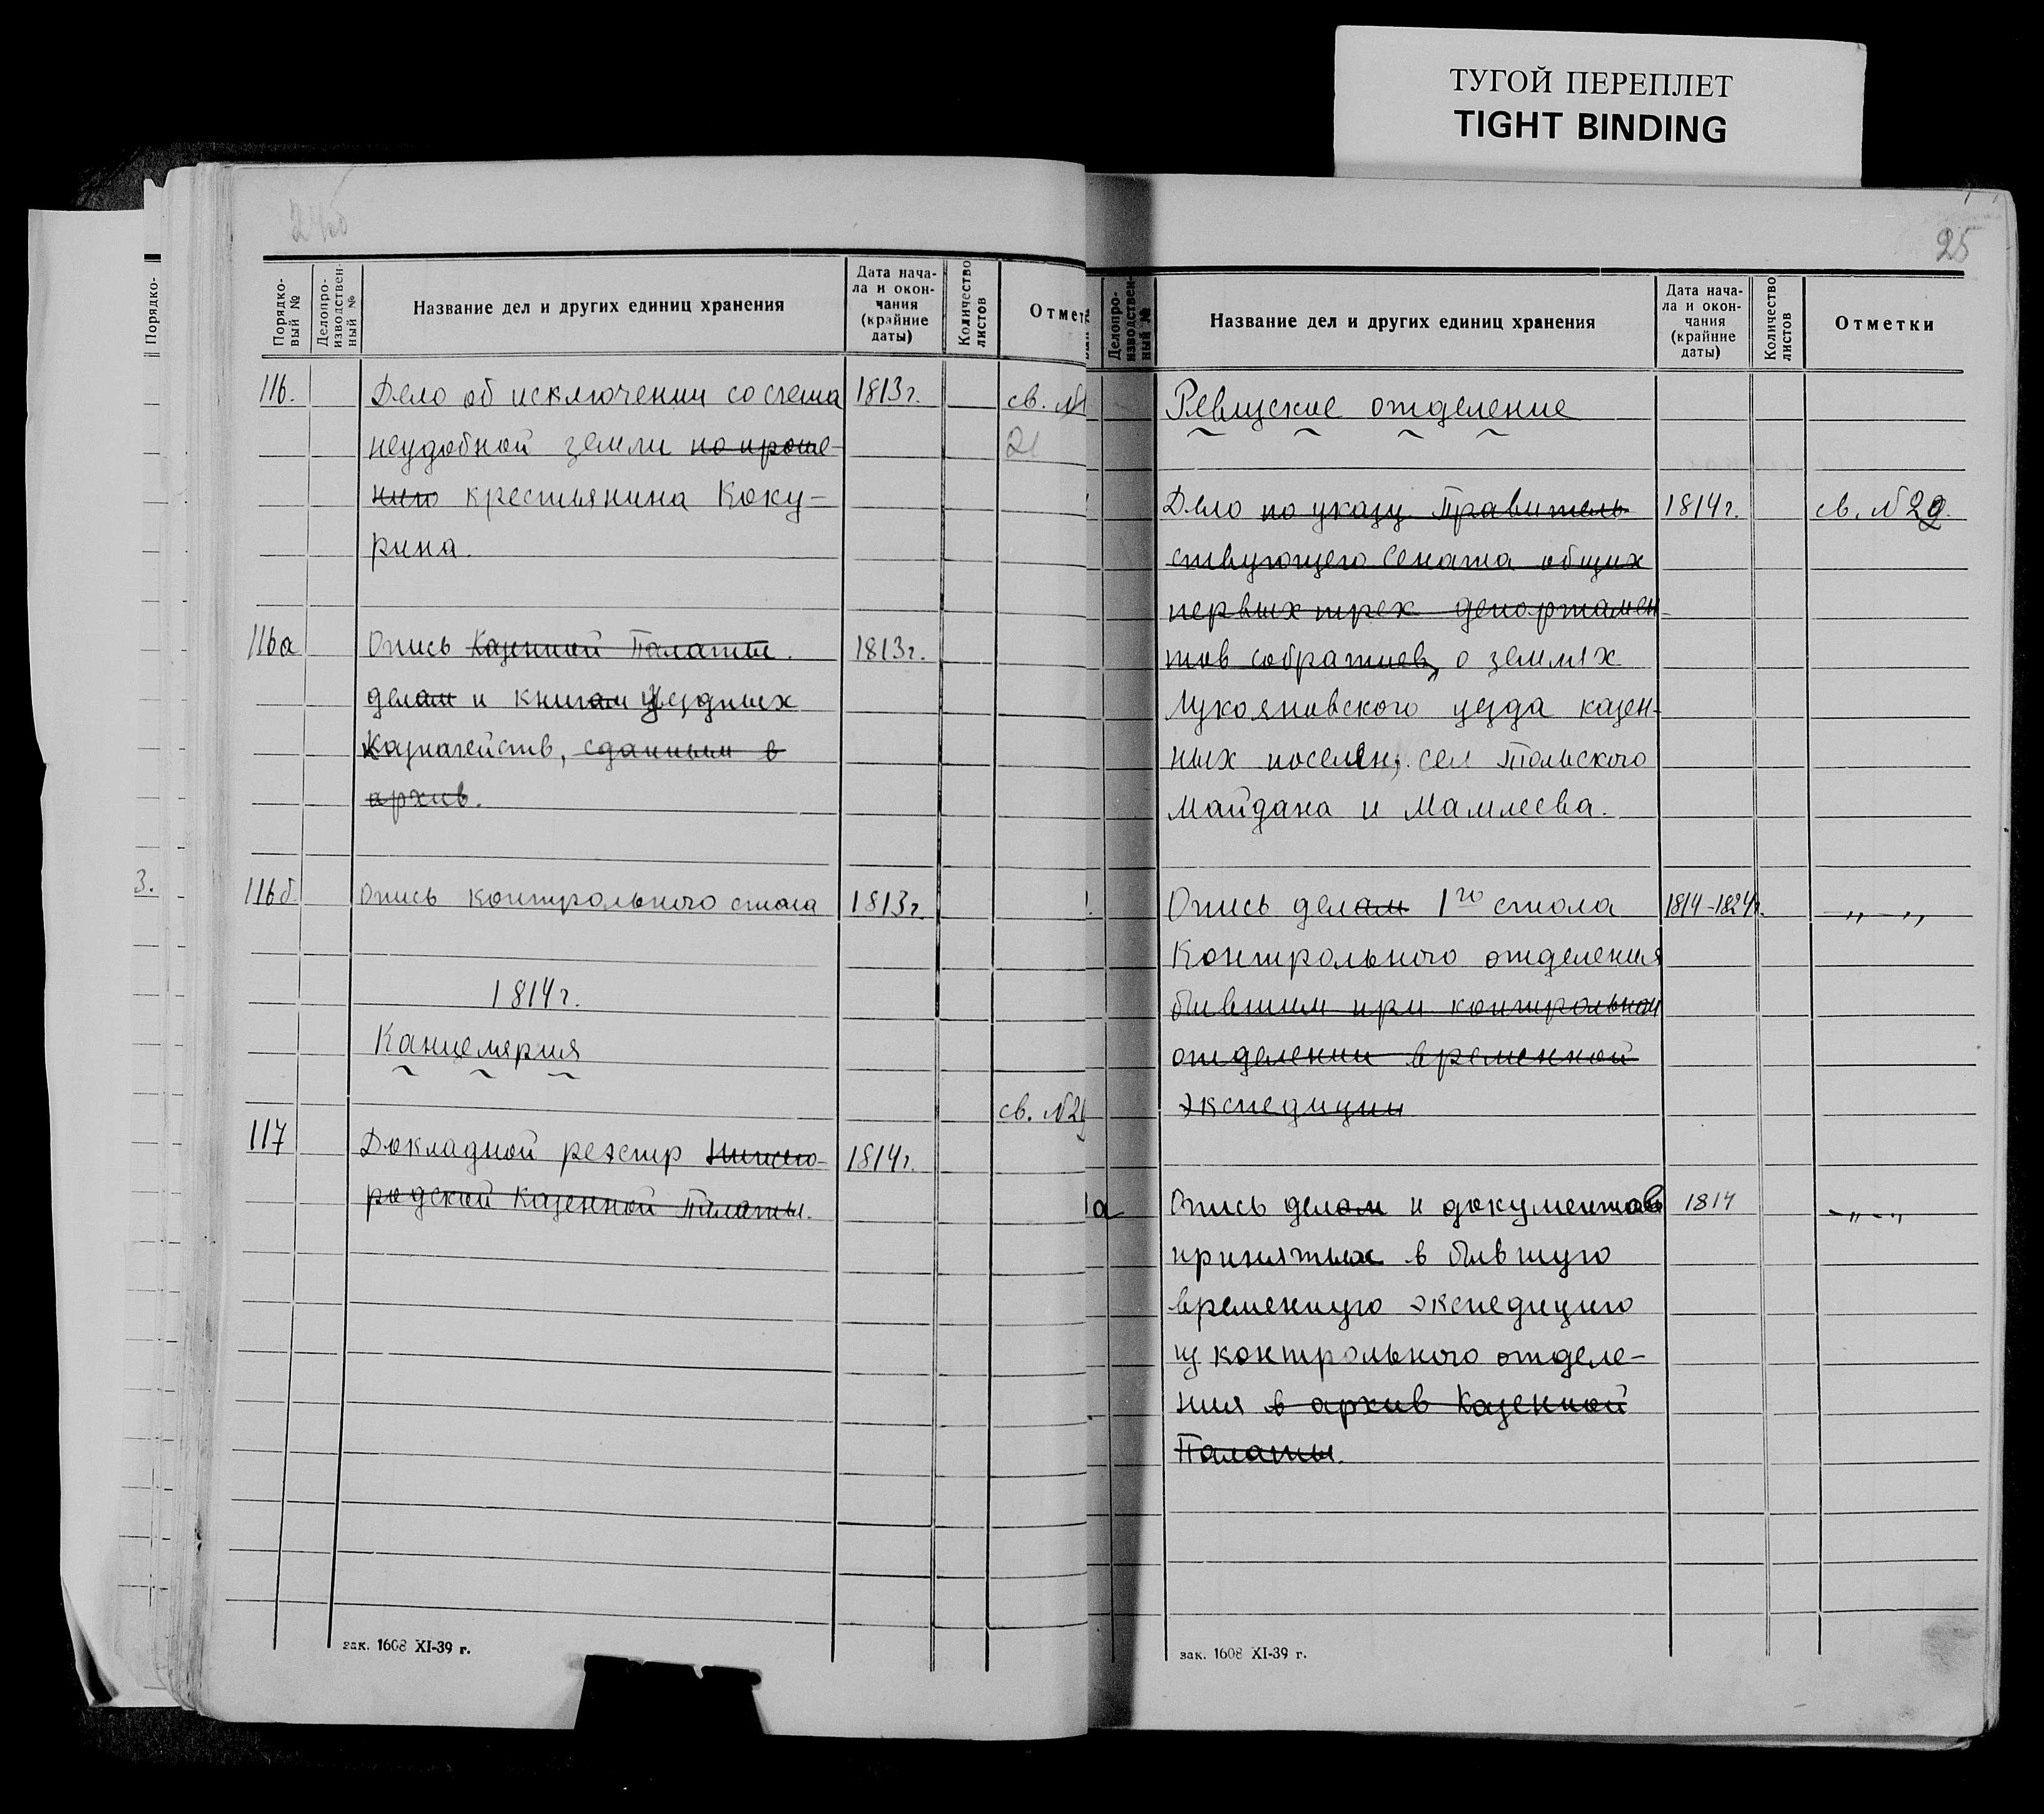 ТУГОЙ ПЕРЕПЛЕТ
TIGHT BINDING
Порядко-
Порядко-
вый №
Делопро-
изводствен-
ный №
Название дел и других единиц хранения
Дата нача-
ла и окон-
чания
(крайние
даты)
Количество
листов
Отмет
116. Дело об исключении со счета 1813 г. св. №
неудобной земли по проше- 21
нию крестьянина Коку-
рина.
116а Опись Казенной Палаты. 1813 г.
делам и книгам Уездных
Казначейств, сданным в
архив.
3.
116б Опись контрольного стола 1813 г.
1814 г.
Канцелярия
св. №2
117 Докладной реэстр Нижего- 1814 г.
родской Казенной Палаты.
зак. 1608 XI-39 г.
25
Делопро-
изводствен-
ный №
Название дел и других единиц хранения
Дата нача-
ла и окон-
чания
(крайние
даты)
Количество
листов
Отметки
Ревизское отделение
Дело по указу Правитель- 1814 г. св. №22.
ствующего Сената общих
первых трех департамен-
тов собраниев, о землях
Лукояновского уезда казен-
ных поселен; сел Тольского
Майдана и Мамлеева.
Опись делам 1го стола 1814-1824 г. -„-„
Контрольного отделения
бывшим при контрольном
отделении временной
экспедиции
а Опись делам и документов 1814 -„-„
принятых в бывшую
временную экспедицию
из контрольного отделе-
ния в архив Казенной
Палаты.
зак. 1608 XI-39 г.